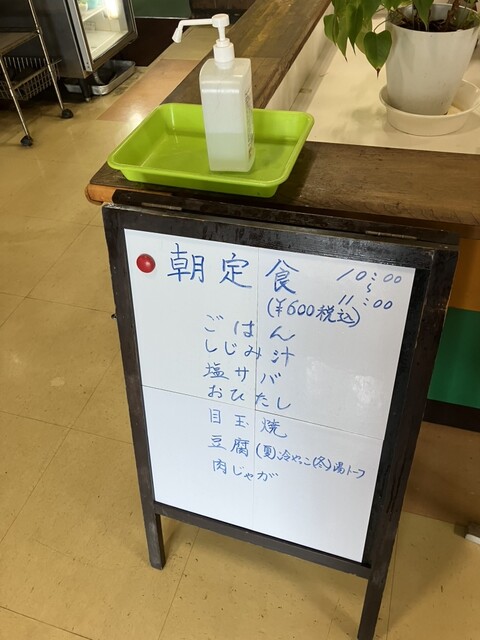 朝定食 10:00
(¥600税込) 〜
11:00
ごはん
しじみ汁
塩サバ
おひたし
目玉焼
豆腐(夏)冷やっこ(冬)湯トーフ
肉じゃが